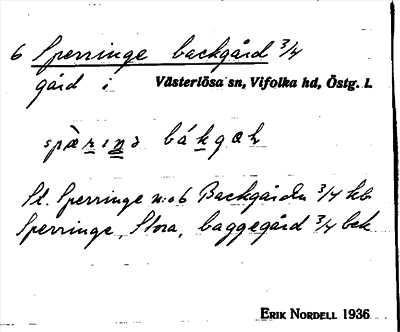 6 Sperringe backgård 3/4
gård i Västerlösa sn, Vifolka hd, Östg. l.
spæ̀rıŋə bákgɑɽ
St. Sperringe n:o 6 Backgården 3/4 kb
Sperringe, Stora, baggegård 3/4 bek
ERIK NORDELL 1936